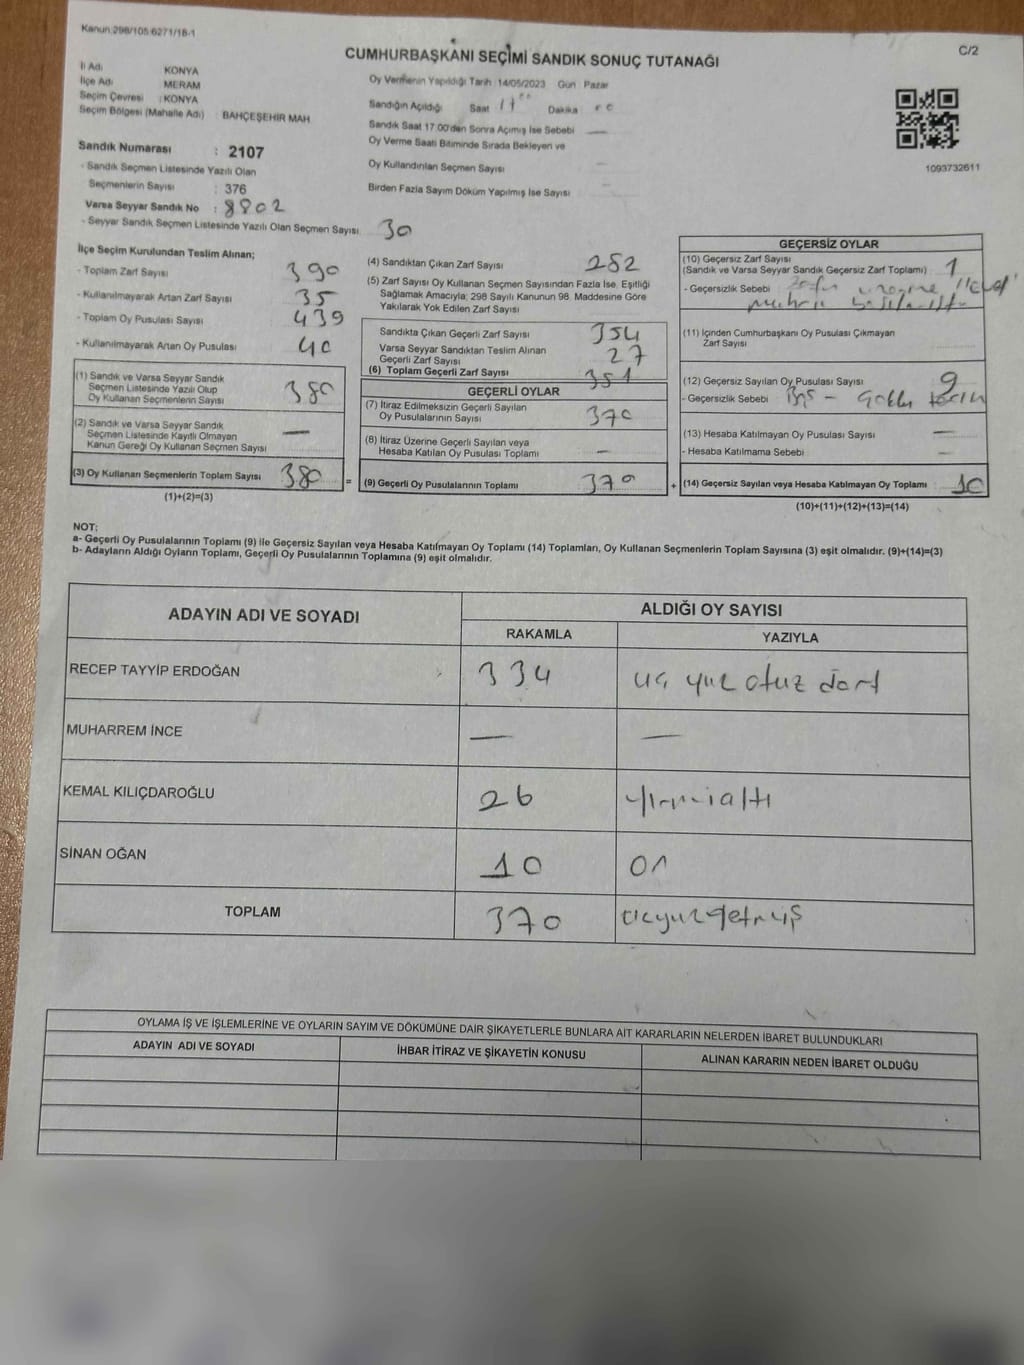 Kanun:298/105:6271/18-1
C/2
CUMHURBAŞKANI SEÇİMİ SANDIK SONUÇ TUTANAĞI
İl Adı KONYA
İlçe Adı MERAM
Seçim Çevresi : KONYA
Seçim Bölgesi (Mahalle Adı) BAHÇEŞEHİR MAH
Oy Vermenin Yapıldığı Tarih 14/05/2023 Gün Pazar
Sandığın Açıldığı Saat Dakika
Sandık Saat 17.00'den Sonra Açımış İse Sebebi —
Oy Verme Saati Bitiminde Sırada Bekleyen ve
Oy Kullandırılan Seçmen Sayısı
Birden Fazla Sayım Döküm Yapılmış İse Sayısı
1093732611
Sandık Numarası : 2107
- Sandık Seçmen Listesinde Yazılı Olan
Seçmenlerin Sayısı : 376
Varsa Seyyar Sandık No : 8802
- Seyyar Sandık Seçmen Listesinde Yazılı Olan Seçmen Sayısı 30
İlçe Seçim Kurulundan Teslim Alınan;
- Toplam Zarf Sayısı 390
- Kullanılmayarak Artan Zarf Sayısı 35
- Toplam Oy Pusulası Sayısı 439
- Kullanılmayarak Artan Oy Pusulası 40
(1) Sandık ve Varsa Seyyar Sandık
Seçmen Listesinde Yazılı Olup
Oy Kullanan Seçmenlerin Sayısı 380
(2) Sandık ve Varsa Seyyar Sandık
Seçmen Listesinde Kayıtlı Olmayan
Kanun Gereği Oy Kullanan Seçmen Sayısı —
(3) Oy Kullanan Seçmenlerin Toplam Sayısı 380
(1)+(2)=(3)
(4) Sandıktan Çıkan Zarf Sayısı
(5) Zarf Sayısı Oy Kullanan Seçmen Sayısından Fazla İse, Eşitliği
Sağlamak Amacıyla; 298 Sayılı Kanunun 98. Maddesine Göre
Yakılarak Yok Edilen Zarf Sayısı
Sandıkta Çıkan Geçerli Zarf Sayısı 354
Varsa Seyyar Sandıktan Teslim Alınan
Geçerli Zarf Sayısı 27
(6) Toplam Geçerli Zarf Sayısı
GEÇERLİ OYLAR
(7) İtiraz Edilmeksizin Geçerli Sayılan
Oy Pusulalarının Sayısı 370
(8) İtiraz Üzerine Geçerli Sayılan veya
Hesaba Katılan Oy Pusulası Toplamı —
= (9) Geçerli Oy Pusulalarının Toplamı 370
GEÇERSİZ OYLAR
(10) Geçersiz Zarf Sayısı
(Sandık ve Varsa Seyyar Sandık Geçersiz Zarf Toplamı) 1
- Geçersizlik Sebebi
(11) İçinden Cumhurbaşkanı Oy Pusulası Çıkmayan
Zarf Sayısı
(12) Geçersiz Sayılan Oy Pusulası Sayısı 9
- Geçersizlik Sebebi
(13) Hesaba Katılmayan Oy Pusulası Sayısı —
- Hesaba Katılmama Sebebi —
+ (14) Geçersiz Sayılan veya Hesaba Katılmayan Oy Toplamı 10
(10)+(11)+(12)+(13)=(14)
NOT:
a- Geçerli Oy Pusulalarının Toplamı (9) ile Geçersiz Sayılan veya Hesaba Katılmayan Oy Toplamı (14) Toplamları, Oy Kullanan Seçmenlerin Toplam Sayısına (3) eşit olmalıdır. (9)+(14)=(3)
b- Adayların Aldığı Oyların Toplamı, Geçerli Oy Pusulalarının Toplamına (9) eşit olmalıdır.
ADAYIN ADI VE SOYADI ALDIĞI OY SAYISI
RAKAMLA YAZIYLA
RECEP TAYYİP ERDOĞAN 334 üç yüz otuz dört
MUHARREM İNCE — —
KEMAL KILIÇDAROĞLU 26 yirmialtı
SİNAN OĞAN 10 on
TOPLAM 370 üçyüzyetmiş
OYLAMA İŞ VE İŞLEMLERİNE VE OYLARIN SAYIM VE DÖKÜMÜNE DAİR ŞİKAYETLERLE BUNLARA AİT KARARLARIN NELERDEN İBARET BULUNDUKLARI
ADAYIN ADI VE SOYADI İHBAR İTİRAZ VE ŞİKAYETİN KONUSU ALINAN KARARIN NEDEN İBARET OLDUĞU